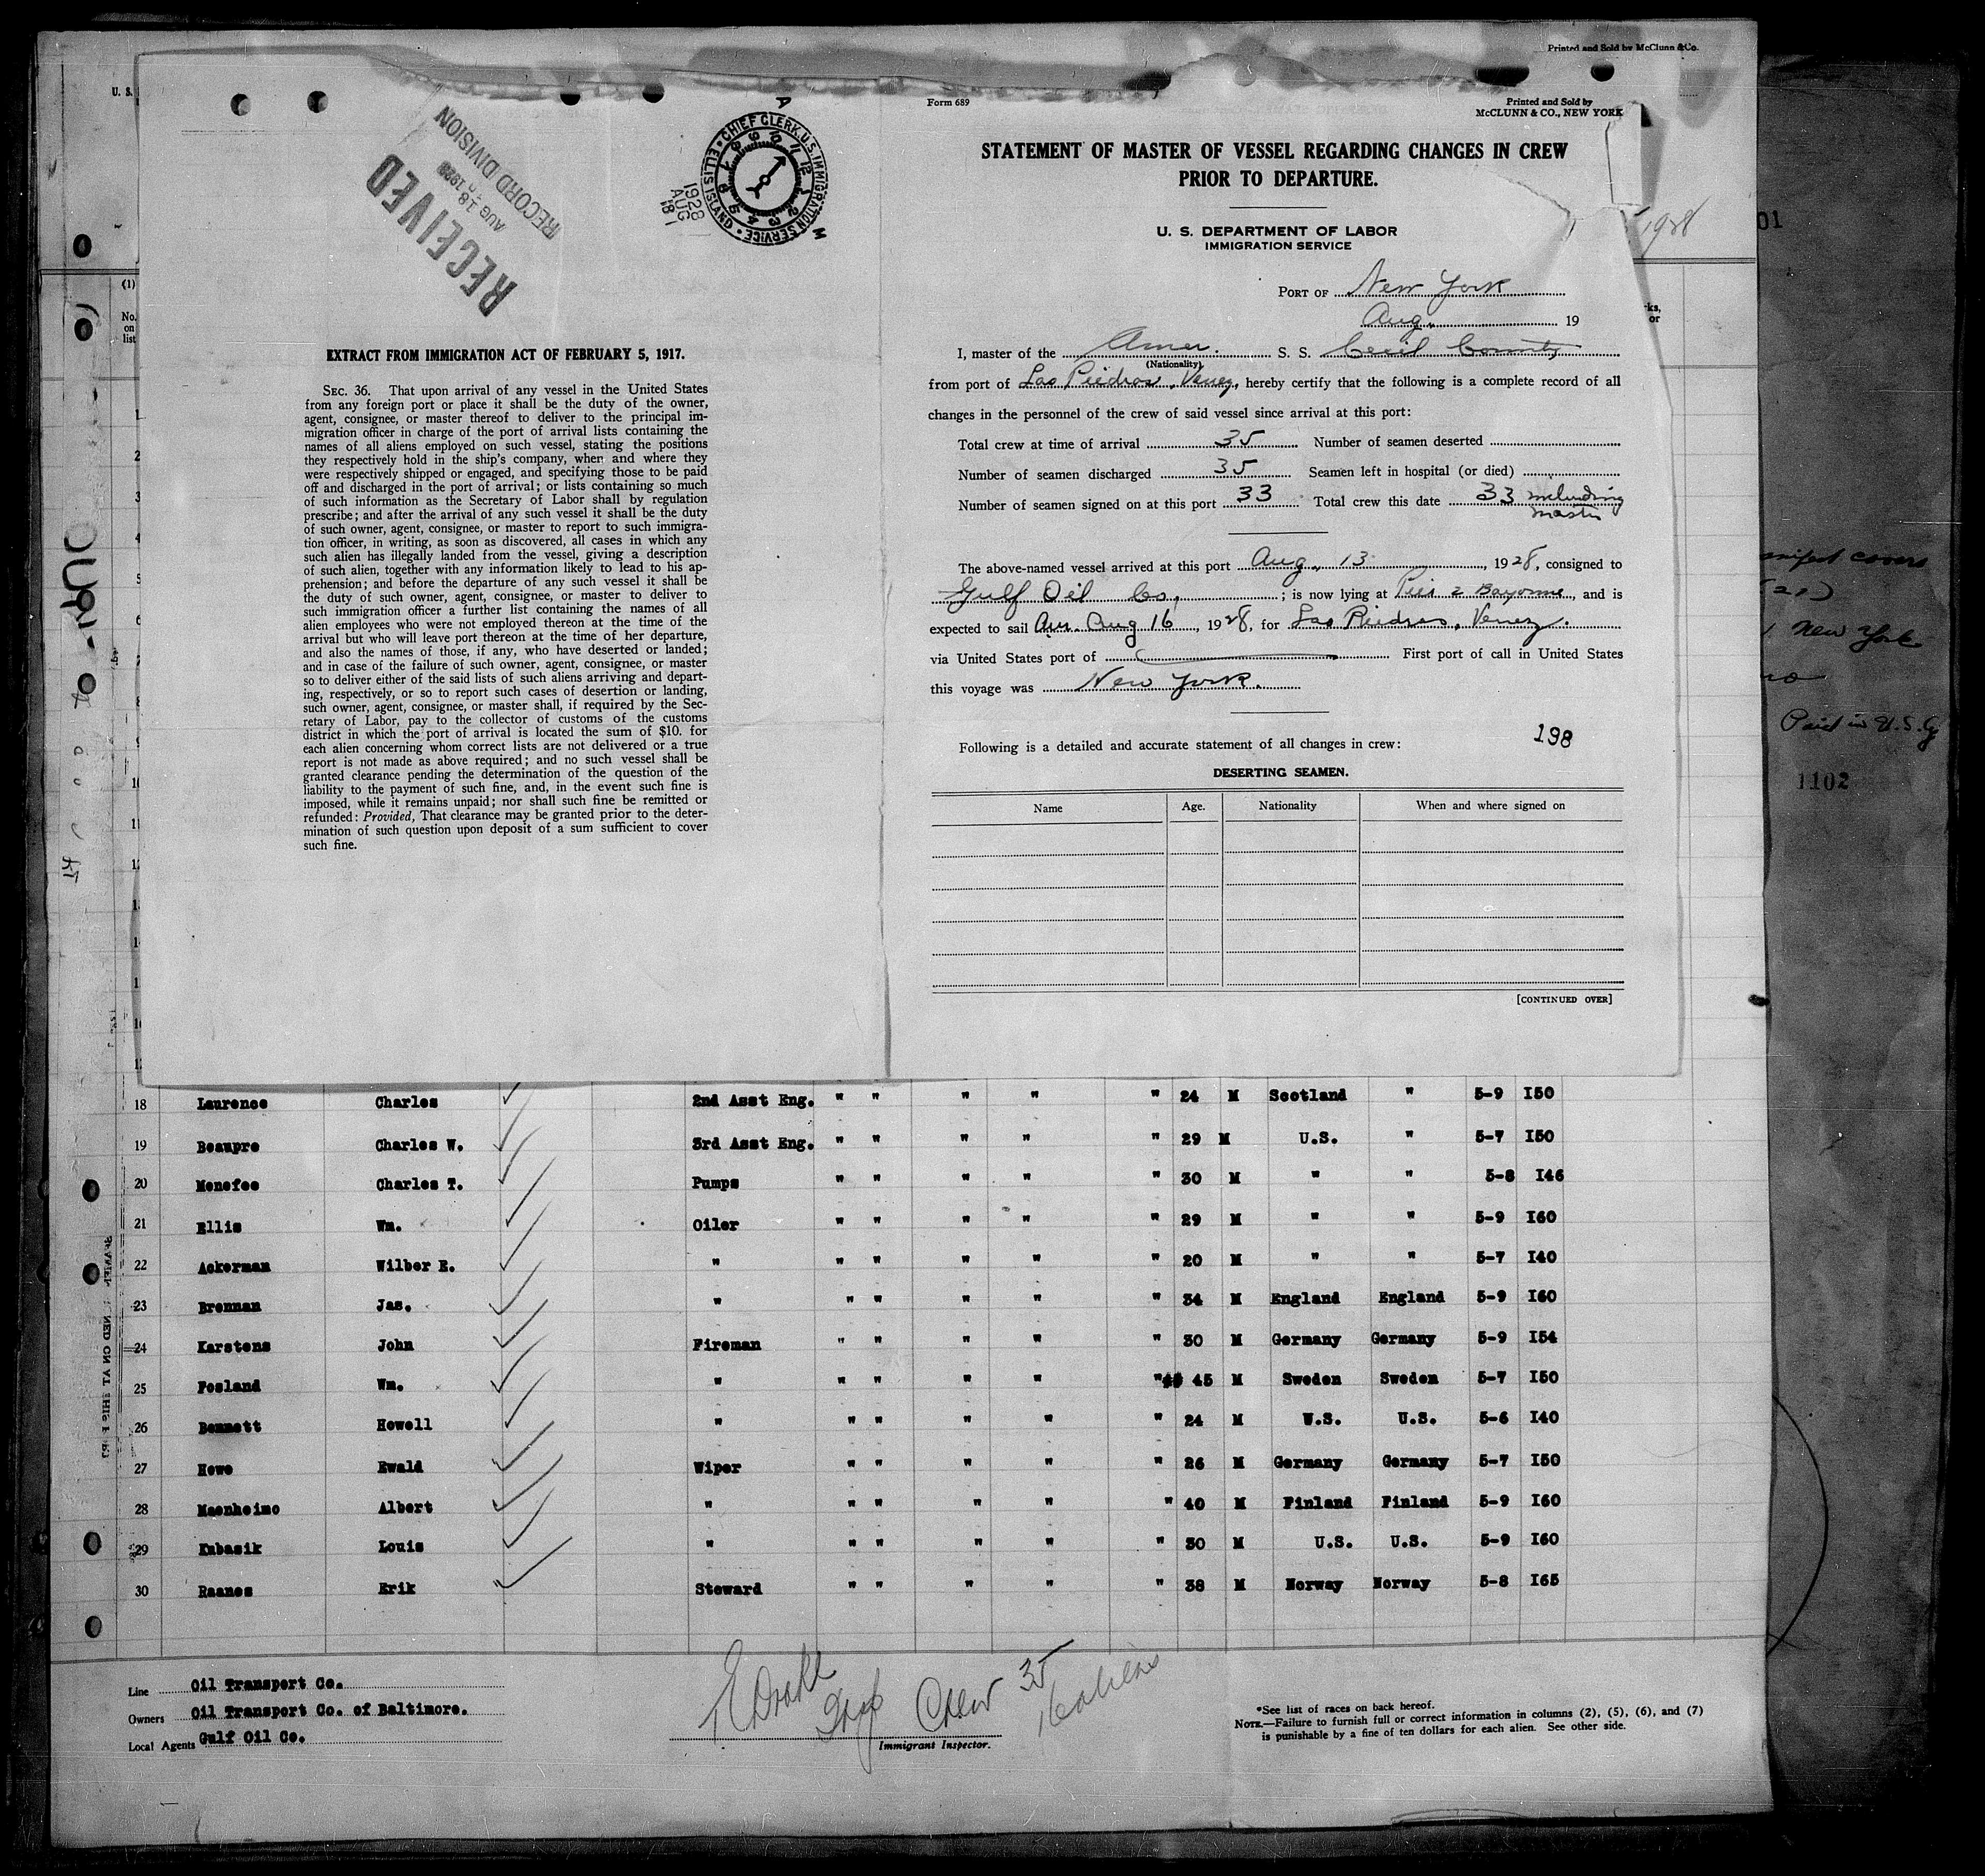 Printed and Sold by McClunn & Co.
U. S.
RECEIVED
AUG 18 1928
RECORD DIVISION
CHIEF CLERK, U.S. IMMIGRATION SERVICE • ELLIS ISLAND •
A M
1928 AUG 18
EXTRACT FROM IMMIGRATION ACT OF FEBRUARY 5, 1917.
SEC. 36. That upon arrival of any vessel in the United States
from any foreign port or place it shall be the duty of the owner,
agent, consignee, or master thereof to deliver to the principal im-
migration officer in charge of the port of arrival lists containing the
names of all aliens employed on such vessel, stating the positions
they respectively hold in the ship's company, when and where they
were respectively shipped or engaged, and specifying those to be paid
off and discharged in the port of arrival; or lists containing so much
of such information as the Secretary of Labor shall by regulation
prescribe; and after the arrival of any such vessel it shall be the duty
of such owner, agent, consignee, or master to report to such immigra-
tion officer, in writing, as soon as discovered, all cases in which any
such alien has illegally landed from the vessel, giving a description
of such alien, together with any information likely to lead to his ap-
prehension; and before the departure of any such vessel it shall be
the duty of such owner, agent, consignee, or master to deliver to
such immigration officer a further list containing the names of all
alien employees who were not employed thereon at the time of the
arrival but who will leave port thereon at the time of her departure,
and also the names of those, if any, who have deserted or landed;
and in case of the failure of such owner, agent, consignee, or master
so to deliver either of the said lists of such aliens arriving and depart-
ing, respectively, or so to report such cases of desertion or landing,
such owner, agent, consignee, or master shall, if required by the Sec-
retary of Labor, pay to the collector of customs of the customs
district in which the port of arrival is located the sum of $10. for
each alien concerning whom correct lists are not delivered or a true
report is not made as above required; and no such vessel shall be
granted clearance pending the determination of the question of the
liability to the payment of such fine, and, in the event such fine is
imposed, while it remains unpaid; nor shall such fine be remitted or
refunded: Provided, That clearance may be granted prior to the deter-
mination of such question upon deposit of a sum sufficient to cover
such fine.
Form 689
Printed and Sold by
McCLUNN & CO., NEW YORK
STATEMENT OF MASTER OF VESSEL REGARDING CHANGES IN CREW
PRIOR TO DEPARTURE.
U. S. DEPARTMENT OF LABOR
IMMIGRATION SERVICE
PORT OF New York
Aug. 19
I, master of the Amer. S. S. Cecil County
(Nationality)
from port of Las Piedras, Venez, hereby certify that the following is a complete record of all
changes in the personnel of the crew of said vessel since arrival at this port:
Total crew at time of arrival 35 Number of seamen deserted
Number of seamen discharged 35 Seamen left in hospital (or died)
Number of seamen signed on at this port 33 Total crew this date 33 including
master
The above-named vessel arrived at this port Aug. 13 1928, consigned to
Gulf Oil Co. ; is now lying at Pier 2 Bayonne, and is
expected to sail Aug 16, 1928, for Las Piedras, Venez.
via United States port of First port of call in United States
this voyage was New York.
198
Following is a detailed and accurate statement of all changes in crew:
DESERTING SEAMEN.
Name Age. Nationality When and where signed on
[CONTINUED OVER]
1928
01
(1)
No. on list
ks, or
manifest covers
(21)
New York
Paid in U.S.
1102
18 Laurence Charles 2nd Asst Eng. " " " " " 24 M Scotland " 5-9 I50
19 Beaupre Charles W. 3rd Asst Eng. " " " " " 29 M U.S. " 5-7 I50
20 Menefee Charles T. Pumps " " " " " 30 M " " 5-8 I46
21 Ellis Wm. Oiler " " " " " 29 M " " 5-9 I60
22 Ackerman Wilber E. " " " " " " 20 M " " 5-7 I40
23 Brennan Jas. " " " " " " 34 M England England 5-9 I60
24 Karstens John Fireman " " " " " 30 M Germany Germany 5-9 I54
25 Fosland Wm. " " " " " " 45 M Sweden Sweden 5-7 I50
26 Bennett Howell " " " " " " 24 M U.S. U.S. 5-6 I40
27 Howe Ewald Wiper " " " " " 26 M Germany Germany 5-7 I50
28 Maenheimo Albert " " " " " " 40 M Finland Finland 5-9 I60
29 Kubasik Louis " " " " " " 30 M U.S. U.S. 5-9 I60
30 Raanes Erik Steward " " " " " 38 M Norway Norway 5-8 I65
Line Oil Transport Co.
Owners Oil Transport Co. of Baltimore.
Local Agents Gulf Oil Co.
Crew 35
16 aliens
Immigrant Inspector.
*See list of races on back hereof.
NOTE.—Failure to furnish full or correct information in columns (2), (5), (6), and (7)
is punishable by a fine of ten dollars for each alien. See other side.